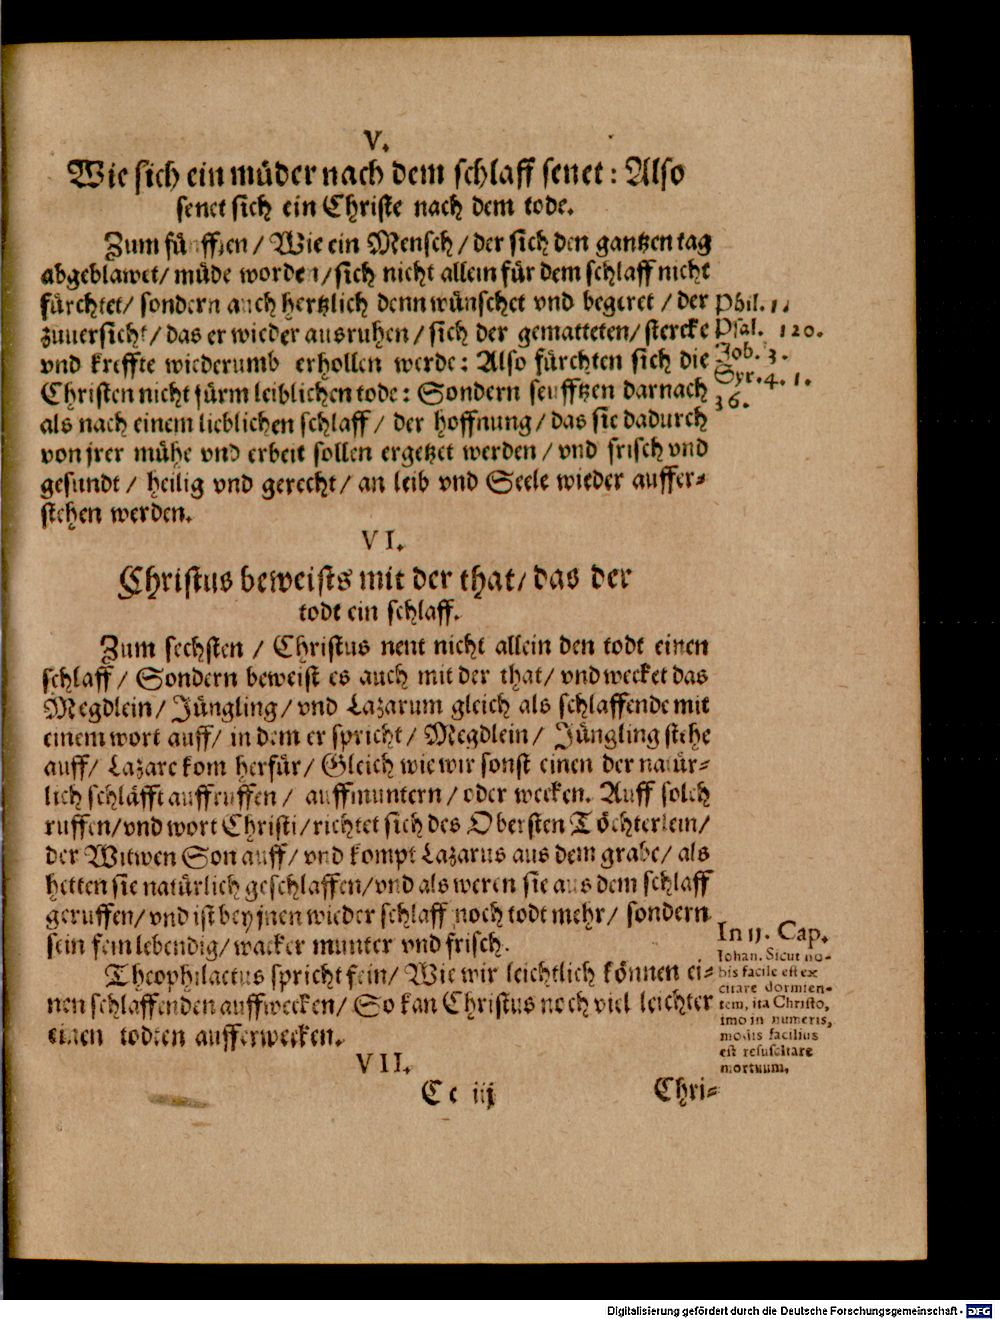 V.
Wie sich ein müder nach dem schlaff senet : Also
senet sich ein Christe nach dem tode.
Zum fünfften / Wie ein Mensch / der sich den gantzen tag
abgeblawet / müde worden / sich nicht allein für dem schlaff nicht
fürchtet / sondern auch hertzlich denn wünschet vnd begeret / der
zuuersicht / das er wieder ausruhen / sich der gematteten / stercke
vnd kreffte wiederumb erhollen werde : Also fürchten sich die
Christen nicht fürm leiblichen tode : Sondern seufftzen darnach
als nach einem lieblichen schlaff / der hoffnung / das sie dadurch
von jrer mühe vnd erbeit sollen ergetzet werden / vnd frisch vnd
gesundt / heilig vnd gerecht / an leib vnd Seele wieder auffer-
stehen werden.
Phil. 1.
Psal. 120.
Job. 3.
Syr. 4. 1.
36.
VI.
Christus beweists mit der that / das der
todt ein schlaff.
Zum sechsten / Christus nent nicht allein den todt einen
schlaff / Sondern beweist es auch mit der that / vnd wecket das
Megdlein / Jüngling / vnd Lazarum gleich als schlaffende mit
einem wort auff / in dem er spricht / Megdlein / Jüngling stehe
auff / Lazare kom herfür / Gleich wie wir sonst einen der natür-
lich schläfft auffruffen / auffmuntern / oder wecken. Auff solch
ruffen / vnd wort Christi / richtet sich des Obersten Töchterlein /
der Witwen Son auff / vnd kompt Lazarus aus dem grabe / als
hetten sie natürlich geschlaffen / vnd als weren sie aus dem schlaff
geruffen / vnd ist bey jnen wieder schlaff noch todt mehr / sondern
sein fein lebendig / wacker munter vnd frisch.
Theophilactus spricht fein / Wie wir leichtlich können ei-
nen schlaffenden auffwecken / So kan Christus noch viel leichter
einen todten aufferwecken.
In 11. Cap.
Iohan. Sicut no-
bis facile est ex
citare dormien-
tem, ita Christo,
imo in numeris,
modis facilius
est resuscitare
mortuum.
VII.
Cc iij
Chri-
Digitalisierung gefördert durch die Deutsche Forschungsgemeinschaft - DFG